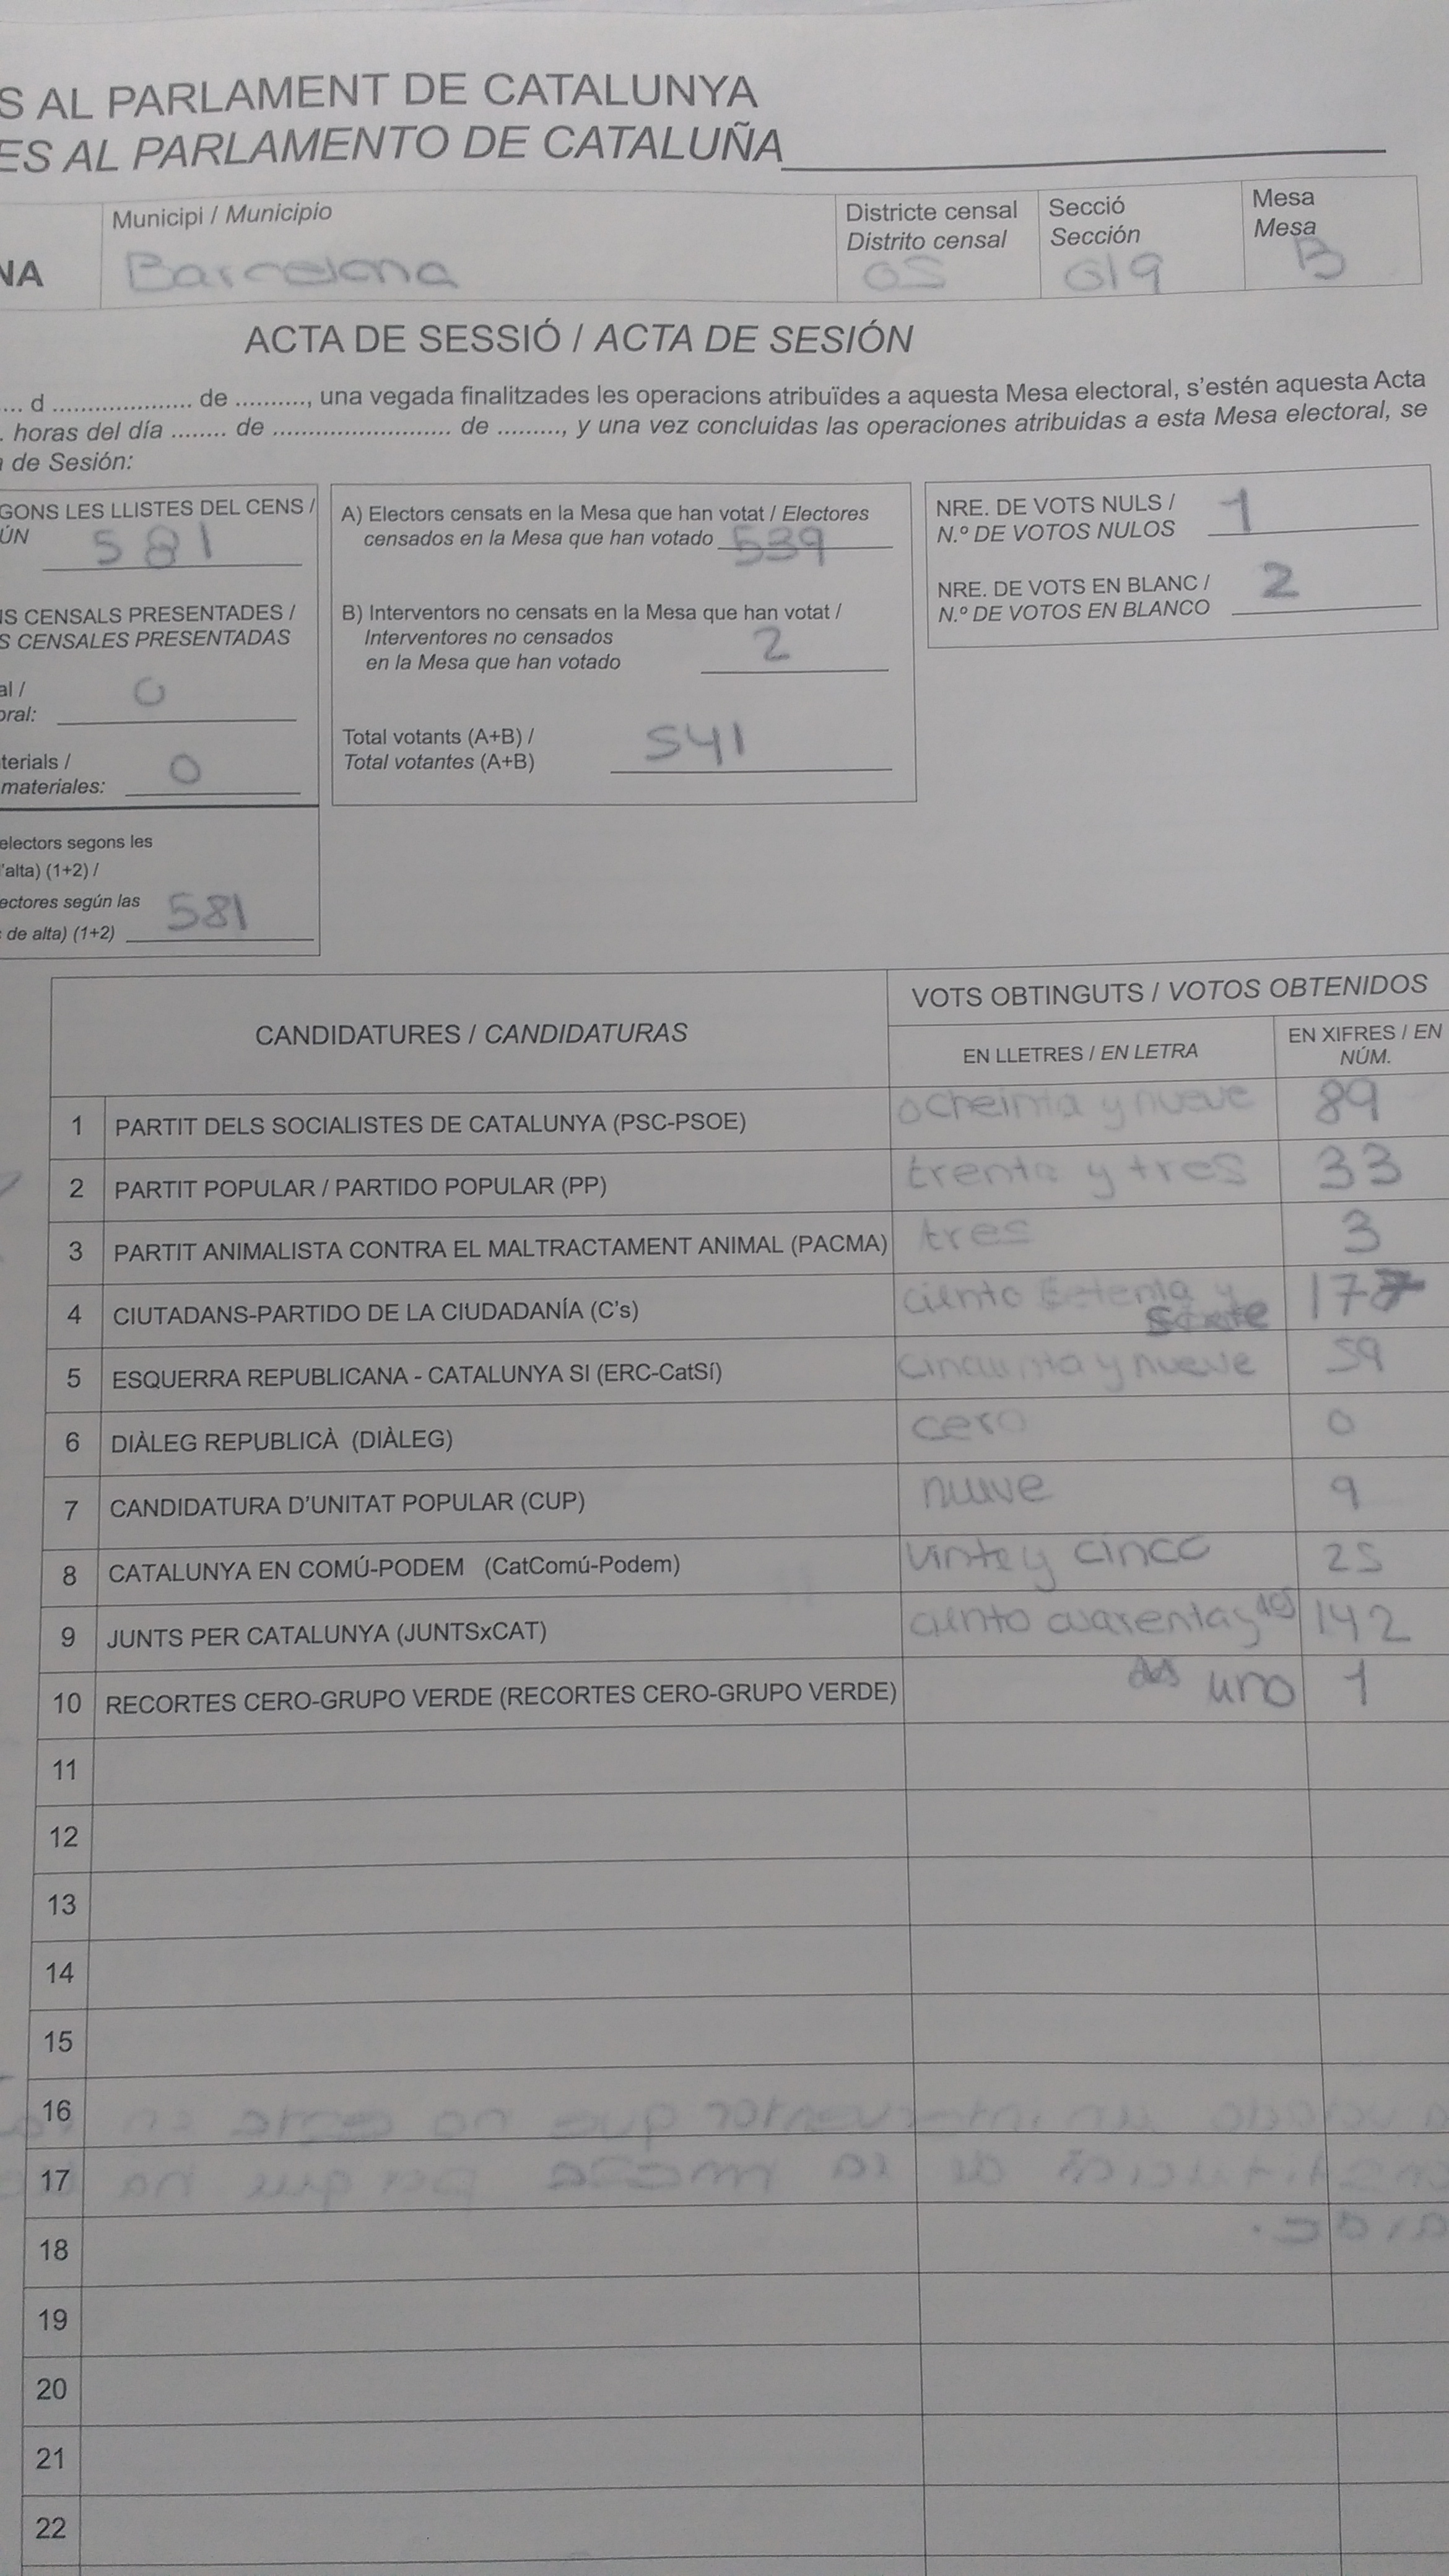 S AL PARLAMENT DE CATALUNYA
ES AL PARLAMENTO DE CATALUÑA
NA
Municipi / Municipio
Barcelona
Districte censal
Distrito censal
05
Secció
Sección
019
Mesa
Mesa
B
ACTA DE SESSIÓ / ACTA DE SESIÓN
.... d .................... de .........., una vegada finalitzades les operacions atribuïdes a aquesta Mesa electoral, s'estén aquesta Acta
. horas del día ........ de ......................... de ........., y una vez concluidas las operaciones atribuidas a esta Mesa electoral, se
de Sesión:
GONS LES LLISTES DEL CENS /
ÚN 581
S CENSALS PRESENTADES /
S CENSALES PRESENTADAS
al / 0
oral:
terials / 0
materiales:
electors segons les
'alta) (1+2) /
ectores según las 581
de alta) (1+2)
A) Electors censats en la Mesa que han votat / Electores
censados en la Mesa que han votado 539
B) Interventors no censats en la Mesa que han votat /
Interventores no censados 2
en la Mesa que han votado
Total votants (A+B) / 541
Total votantes (A+B)
NRE. DE VOTS NULS / 1
N.º DE VOTOS NULOS
NRE. DE VOTS EN BLANC / 2
N.º DE VOTOS EN BLANCO
CANDIDATURES / CANDIDATURAS
VOTS OBTINGUTS / VOTOS OBTENIDOS
EN LLETRES / EN LETRA
EN XIFRES / EN
NÚM.
1 PARTIT DELS SOCIALISTES DE CATALUNYA (PSC-PSOE) ocheinta y nueve 89
2 PARTIT POPULAR / PARTIDO POPULAR (PP) trenta y tres 33
3 PARTIT ANIMALISTA CONTRA EL MALTRACTAMENT ANIMAL (PACMA) tres 3
4 CIUTADANS-PARTIDO DE LA CIUDADANÍA (C's) ciento setenta y 177
5 ESQUERRA REPUBLICANA - CATALUNYA SI (ERC-CatSí) cincuenta y nueve 59
6 DIÀLEG REPUBLICÀ (DIÀLEG) cero 0
7 CANDIDATURA D'UNITAT POPULAR (CUP) nueve 9
8 CATALUNYA EN COMÚ-PODEM (CatComú-Podem) vinte y cinco 25
9 JUNTS PER CATALUNYA (JUNTSxCAT) ciento cuarenta y dos 142
10 RECORTES CERO-GRUPO VERDE (RECORTES CERO-GRUPO VERDE) uno 1
11
12
13
14
15
16
17
18
19
20
21
22